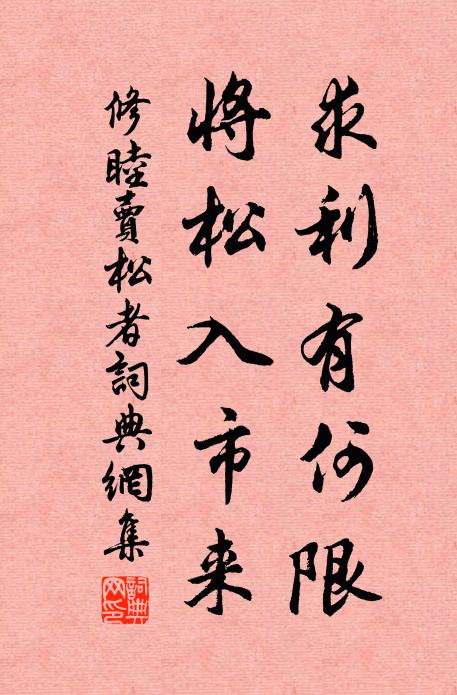 求利有何限
将松入市来
修睦賣松者詞典網集
詞典網印